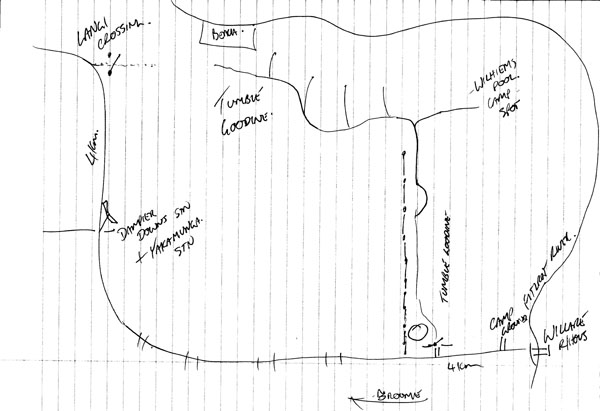 LANGI
CROSSING.
BEACH.
TUMBLE
GOODINE.
WILHIEMS
POOL.
CAMP
SPOT
4Km.
DAMPIER
DOWNS STN
+ YAKAMUNGA.
STN
TUMBLE GOODINE
CAMP
GROUND
FITZROY RIVER.
WILLARE
R/HOUS
4Km
BROOME